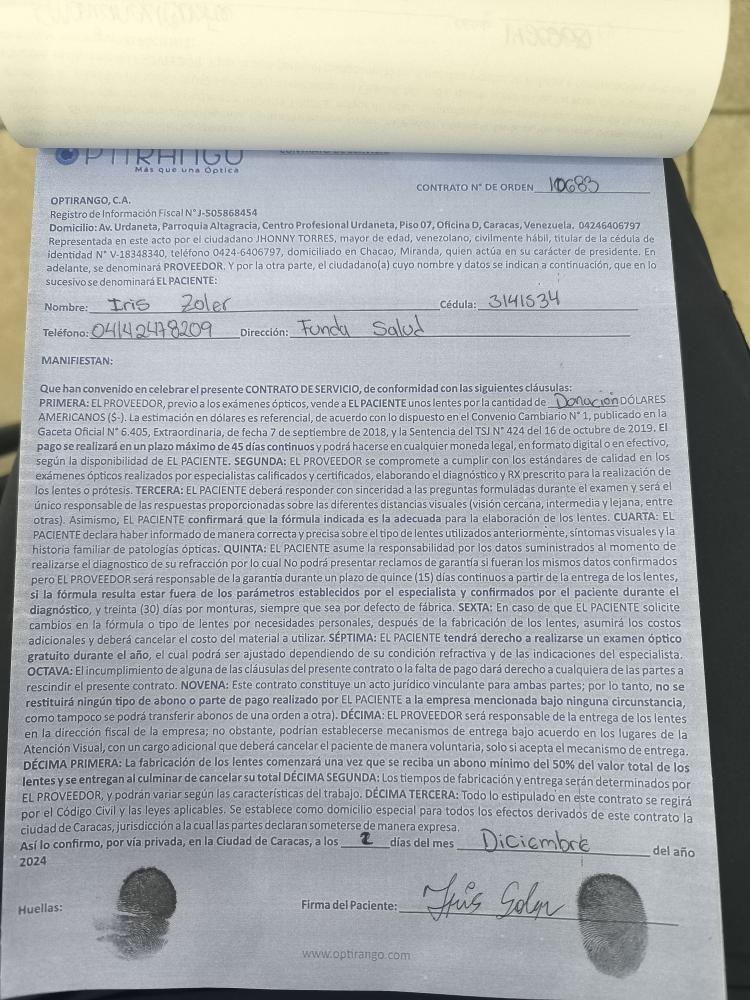 OPTIRANGO
Más que una Óptica
CONTRATO N° DE ORDEN 10683
OPTIRANGO, C.A.
Registro de Información Fiscal N°J-505868454
Domicilio: Av. Urdaneta, Parroquia Altagracia, Centro Profesional Urdaneta, Piso 07, Oficina D, Caracas, Venezuela. 04246406797
Representada en este acto por el ciudadano JHONNY TORRES, mayor de edad, venezolano, civilmente hábil, titular de la cédula de
identidad N° V-18348340, teléfono 0424-6406797, domiciliado en Chacao, Miranda, quien actúa en su carácter de presidente. En
adelante, se denominará PROVEEDOR. Y por la otra parte, el ciudadano(a) cuyo nombre y datos se indican a continuación, que en lo
sucesivo se denominará EL PACIENTE:
Nombre: Iris Zoler Cédula: 3141534
Teléfono: 04142478209 Dirección: Funda Salud
MANIFIESTAN:
Que han convenido en celebrar el presente CONTRATO DE SERVICIO, de conformidad con las siguientes cláusulas:
PRIMERA: EL PROVEEDOR, previo a los exámenes ópticos, vende a EL PACIENTE unos lentes por la cantidad de Donación DÓLARES
AMERICANOS ($-). La estimación en dólares es referencial, de acuerdo con lo dispuesto en el Convenio Cambiario N° 1, publicado en la
Gaceta Oficial N° 6.405, Extraordinaria, de fecha 7 de septiembre de 2018, y la Sentencia del TSJ N° 424 del 16 de octubre de 2019. El
pago se realizará en un plazo máximo de 45 días continuos y podrá hacerse en cualquier moneda legal, en formato digital o en efectivo,
según la disponibilidad de EL PACIENTE. SEGUNDA: EL PROVEEDOR se compromete a cumplir con los estándares de calidad en los
exámenes ópticos realizados por especialistas calificados y certificados, elaborando el diagnóstico y RX prescrito para la realización de
los lentes o prótesis. TERCERA: EL PACIENTE deberá responder con sinceridad a las preguntas formuladas durante el examen y será el
único responsable de las respuestas proporcionadas sobre las diferentes distancias visuales (visión cercana, intermedia y lejana, entre
otras). Asimismo, EL PACIENTE confirmará que la fórmula indicada es la adecuada para la elaboración de los lentes. CUARTA: EL
PACIENTE declara haber informado de manera correcta y precisa sobre el tipo de lentes utilizados anteriormente, síntomas visuales y la
historia familiar de patologías ópticas. QUINTA: EL PACIENTE asume la responsabilidad por los datos suministrados al momento de
realizarse el diagnostico de su refracción por lo cual No podrá presentar reclamos de garantía si fueran los mismos datos confirmados
pero EL PROVEEDOR será responsable de la garantía durante un plazo de quince (15) días continuos a partir de la entrega de los lentes,
si la fórmula resulta estar fuera de los parámetros establecidos por el especialista y confirmados por el paciente durante el
diagnóstico, y treinta (30) días por monturas, siempre que sea por defecto de fábrica. SEXTA: En caso de que EL PACIENTE solicite
cambios en la fórmula o tipo de lentes por necesidades personales, después de la fabricación de los lentes, asumirá los costos
adicionales y deberá cancelar el costo del material a utilizar. SÉPTIMA: EL PACIENTE tendrá derecho a realizarse un examen óptico
gratuito durante el año, el cual podrá ser ajustado dependiendo de su condición refractiva y de las indicaciones del especialista.
OCTAVA: El incumplimiento de alguna de las cláusulas del presente contrato o la falta de pago dará derecho a cualquiera de las partes a
rescindir el presente contrato. NOVENA: Este contrato constituye un acto jurídico vinculante para ambas partes; por lo tanto, no se
restituirá ningún tipo de abono o parte de pago realizado por EL PACIENTE a la empresa mencionada bajo ninguna circunstancia,
como tampoco se podrá transferir abonos de una orden a otra). DÉCIMA: EL PROVEEDOR será responsable de la entrega de los lentes
en la dirección fiscal de la empresa; no obstante, podrían establecerse mecanismos de entrega bajo acuerdo en los lugares de la
Atención Visual, con un cargo adicional que deberá cancelar el paciente de manera voluntaria, solo si acepta el mecanismo de entrega.
DÉCIMA PRIMERA: La fabricación de los lentes comenzará una vez que se reciba un abono mínimo del 50% del valor total de los
lentes y se entregan al culminar de cancelar su total DÉCIMA SEGUNDA: Los tiempos de fabricación y entrega serán determinados por
EL PROVEEDOR, y podrán variar según las características del trabajo. DÉCIMA TERCERA: Todo lo estipulado en este contrato se regirá
por el Código Civil y las leyes aplicables. Se establece como domicilio especial para todos los efectos derivados de este contrato la
ciudad de Caracas, jurisdicción a la cual las partes declaran someterse de manera expresa.
Así lo confirmo, por vía privada, en la Ciudad de Caracas, a los 2 días del mes Diciembre del año
2024
Huellas:
Firma del Paciente: Iris Soler
www.optirango.com